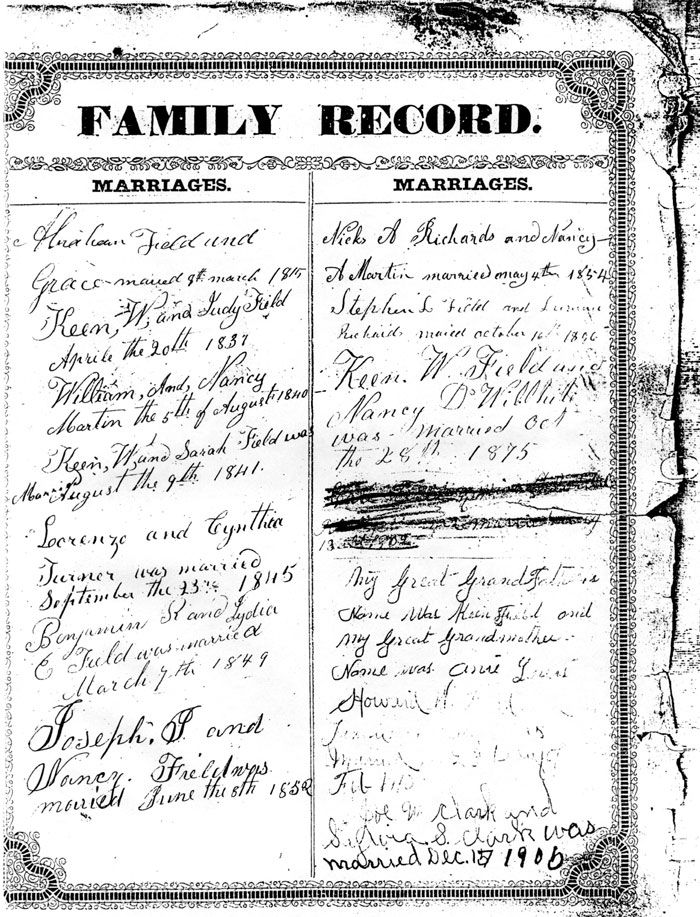 FAMILY RECORD.
MARRIAGES.
Abraham Field and
Grace maried 8th march 1815
Keen, W, and Judy Field
Aprile the 20th 1837
William, And, Nancy
Martin the 5th of August 1840
Keen, W, and Sarah Field was
Married August the 9th 1841.
Lorenzo and Cynthia
Turner was married
September the 23rd 1845
Benjamin R and Lydia
E Field was married
March 7th 1849
Joseph, T and
Nancy. Field was
maried June the 8th 1852
MARRIAGES.
Nicks A Richards and Nancy
A Martin married may 4th 1854
Stephen L Field and
Richards maried october 16th
Keen. W. Field and
Nancy D Willhite
was married oct
the 28th 1875
13 1902
My Great Grand Fathers
Name Was Keen Field and
My Great Grandmother
Name was Anie Lewis
Howard
Feb
Joe W Clark and
S. Clark was
married Dec. 1906